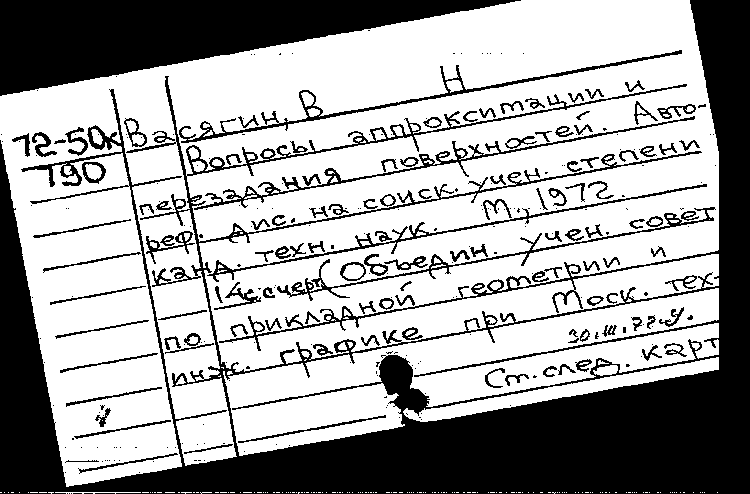 72-50к
790
Васягин, В Н
Вопросы аппроксимации и
перезадания поверхностей. Авто-
реф. дис. на соиск. учен. степени
канд. техн. наук. М., 1972.
14с. с черт (Объедин. учен. совет
по прикладной геометрии и
инж. графике при Моск. тех-
Ст. след. карт